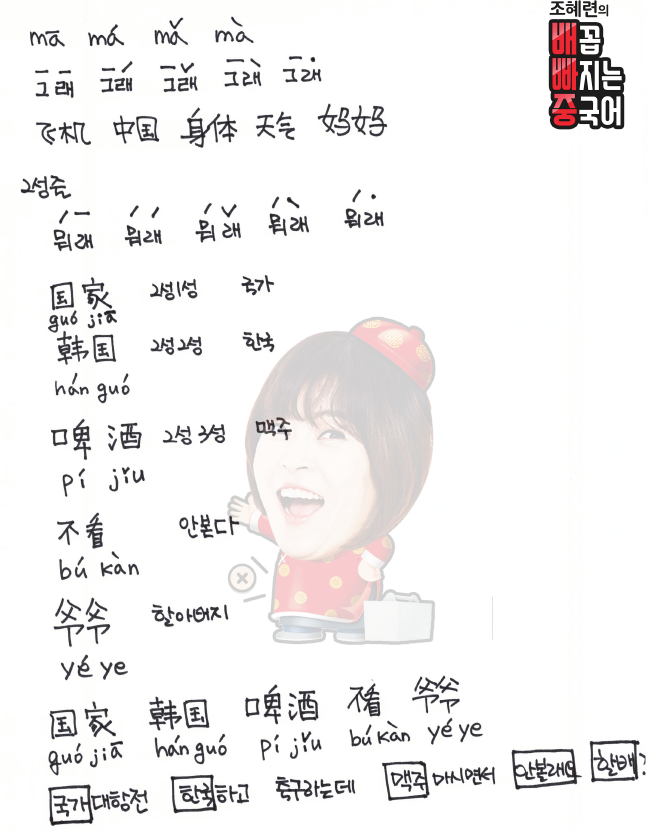 조혜련의
배꼽
빠지는
중국어
mā má mǎ mà
그래 그래 그래 그래 그래
飞机 中国 身体 天气 妈妈
2성준
뭐래 뭐래 뭐래 뭐래 뭐래
国家 2성1성 국가
guó jiā
韩国 2성2성 한국
hán guó
啤酒 2성3성 맥주
pí jǐu
不看 안본다
bú kàn
爷爷 할아버지
yé ye
国家 韩国 啤酒 不看 爷爷
guó jiā hán guó pí jǐu bú kàn yé ye
국가대항전 한국하고 축구하는데 맥주 마시면서 안볼래요 할배?